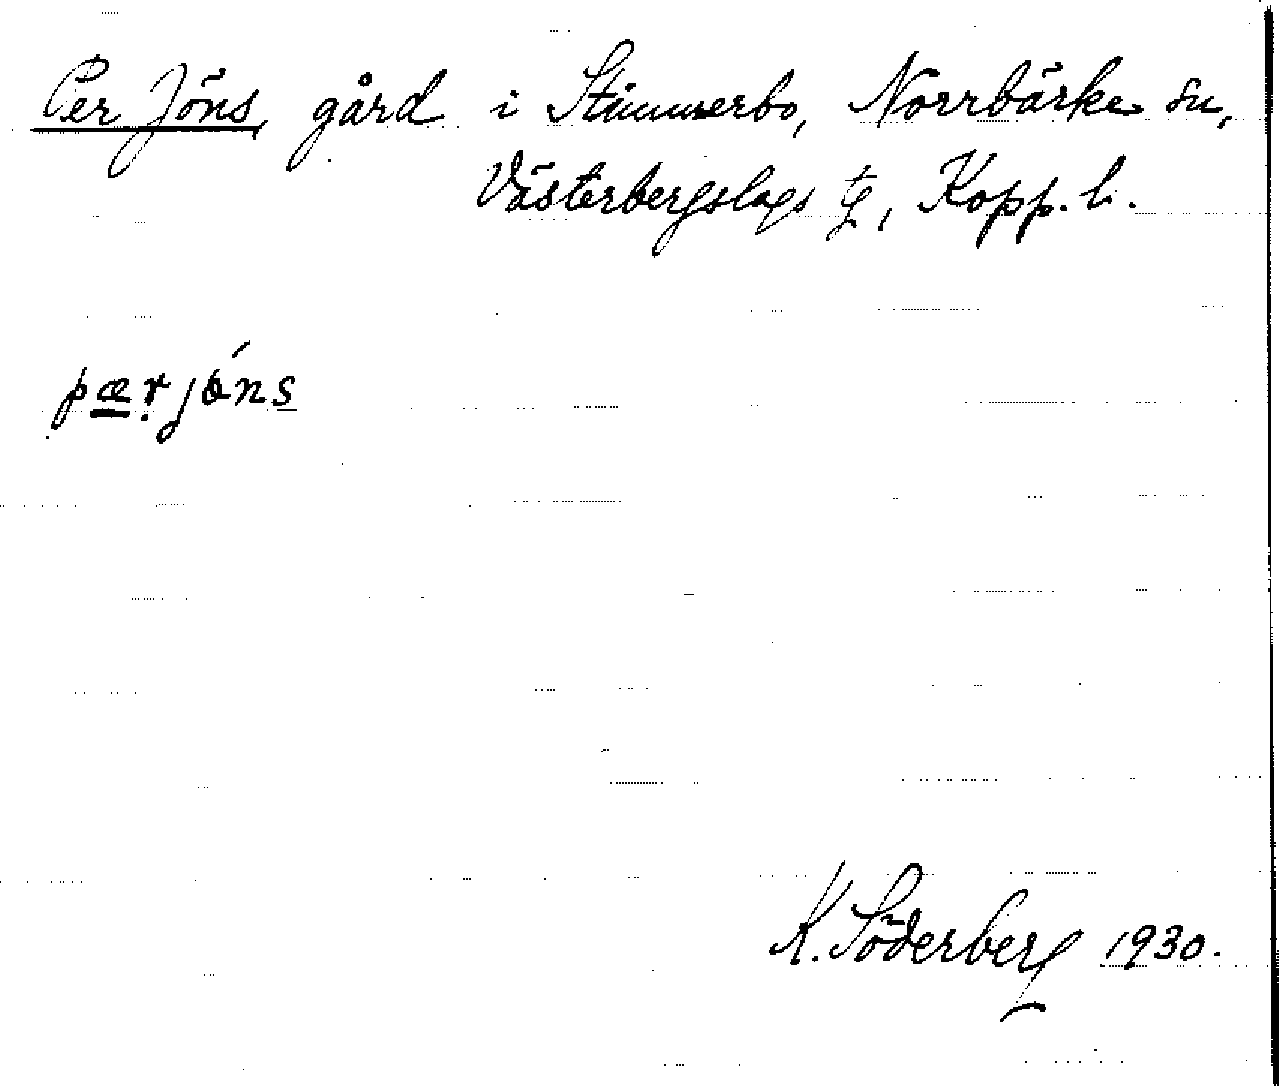 Per Jöns, gård i Stimmerbo, Norrbärke sn,
Västerbergslags tg, Kopp. l.
pærjö́ns
K. Söderberg 1930.